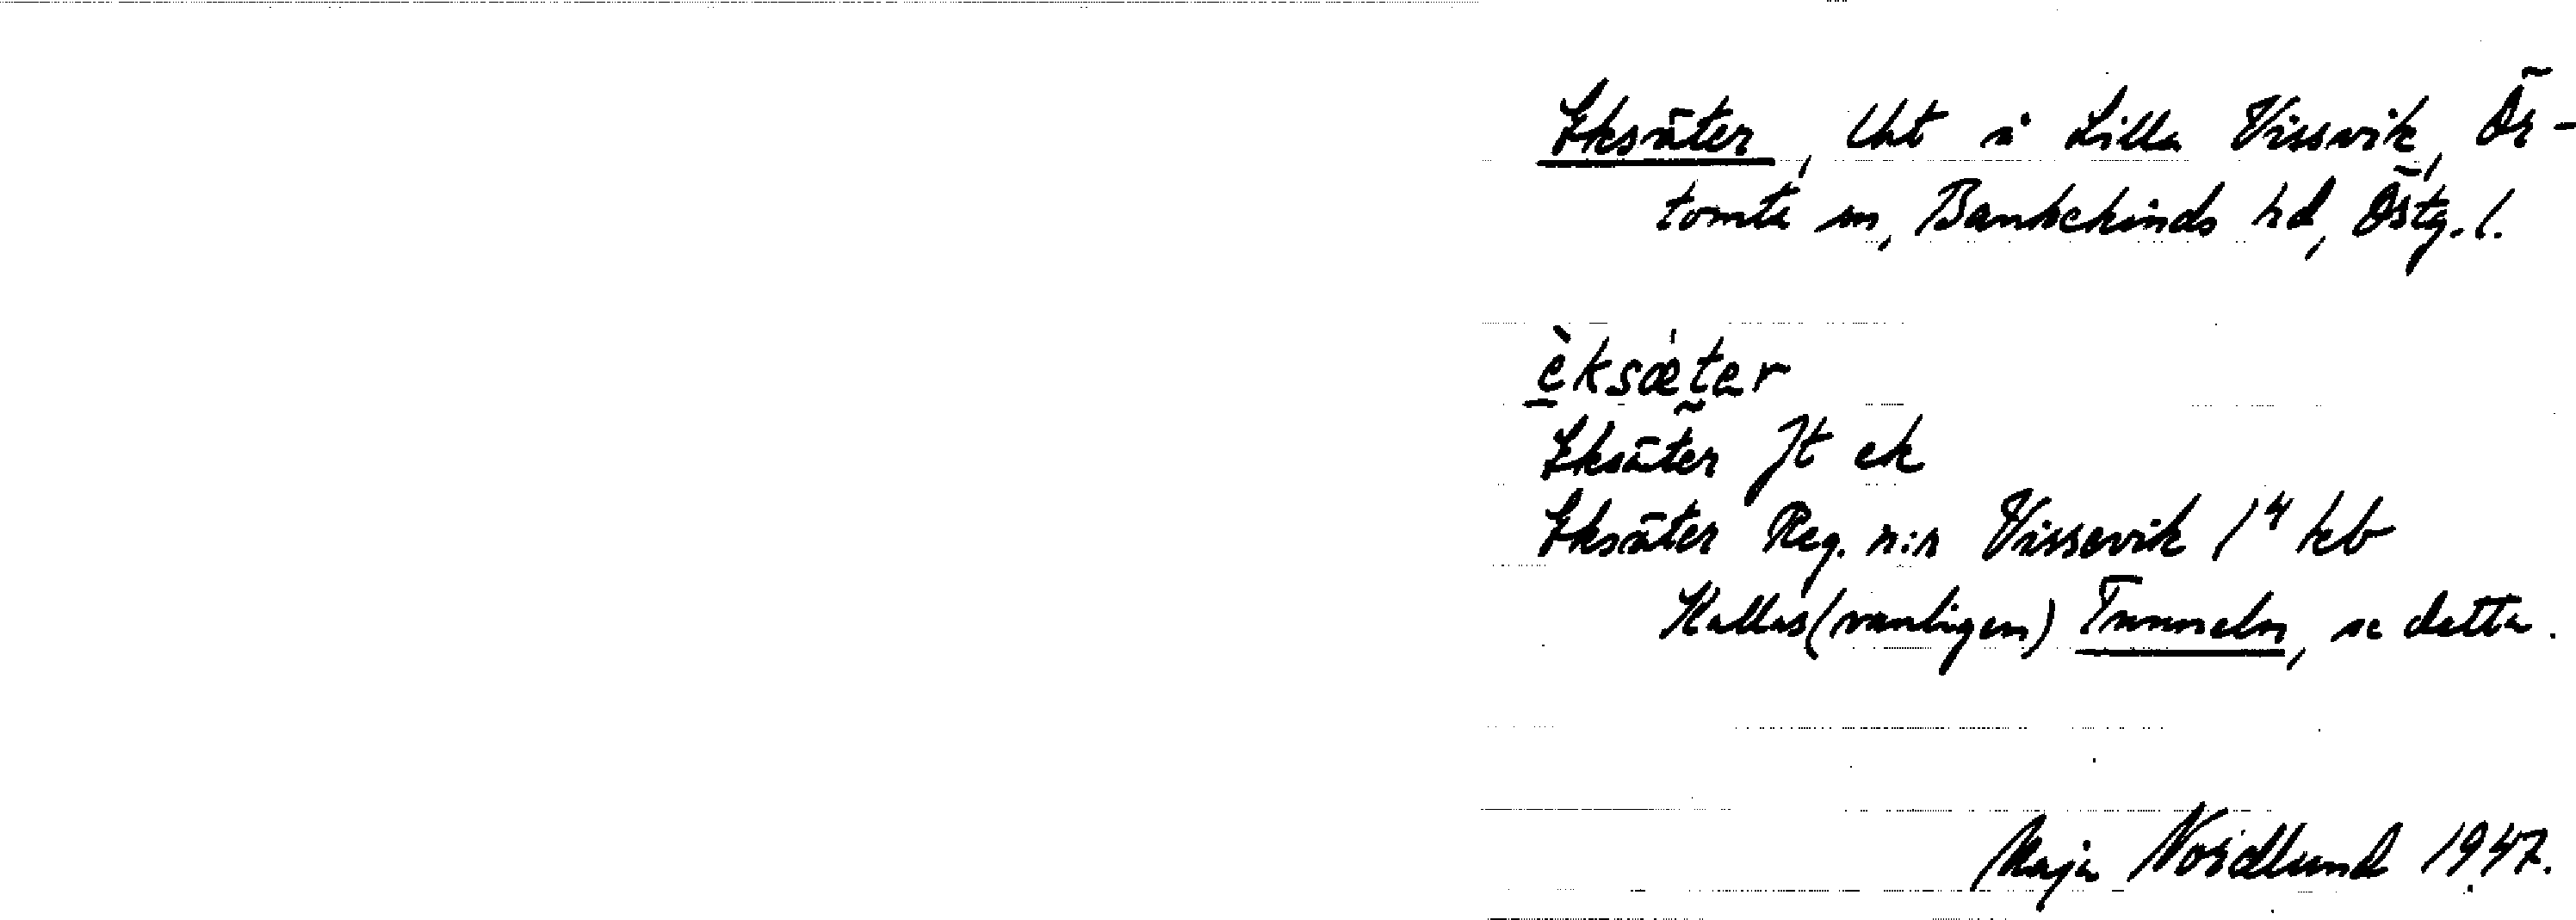 Eksäter, lht å Lilla Vissvik, Ör-
tomta sn, Bankekinds hd, Östg. l.
èksæ̀ter
Eksäter Jt ek
Eksäter Reg. n:r Vissevik 1⁴ kb
Kallas (vanligen) Tunneln, se detta.
Maja Nordlund 1947.